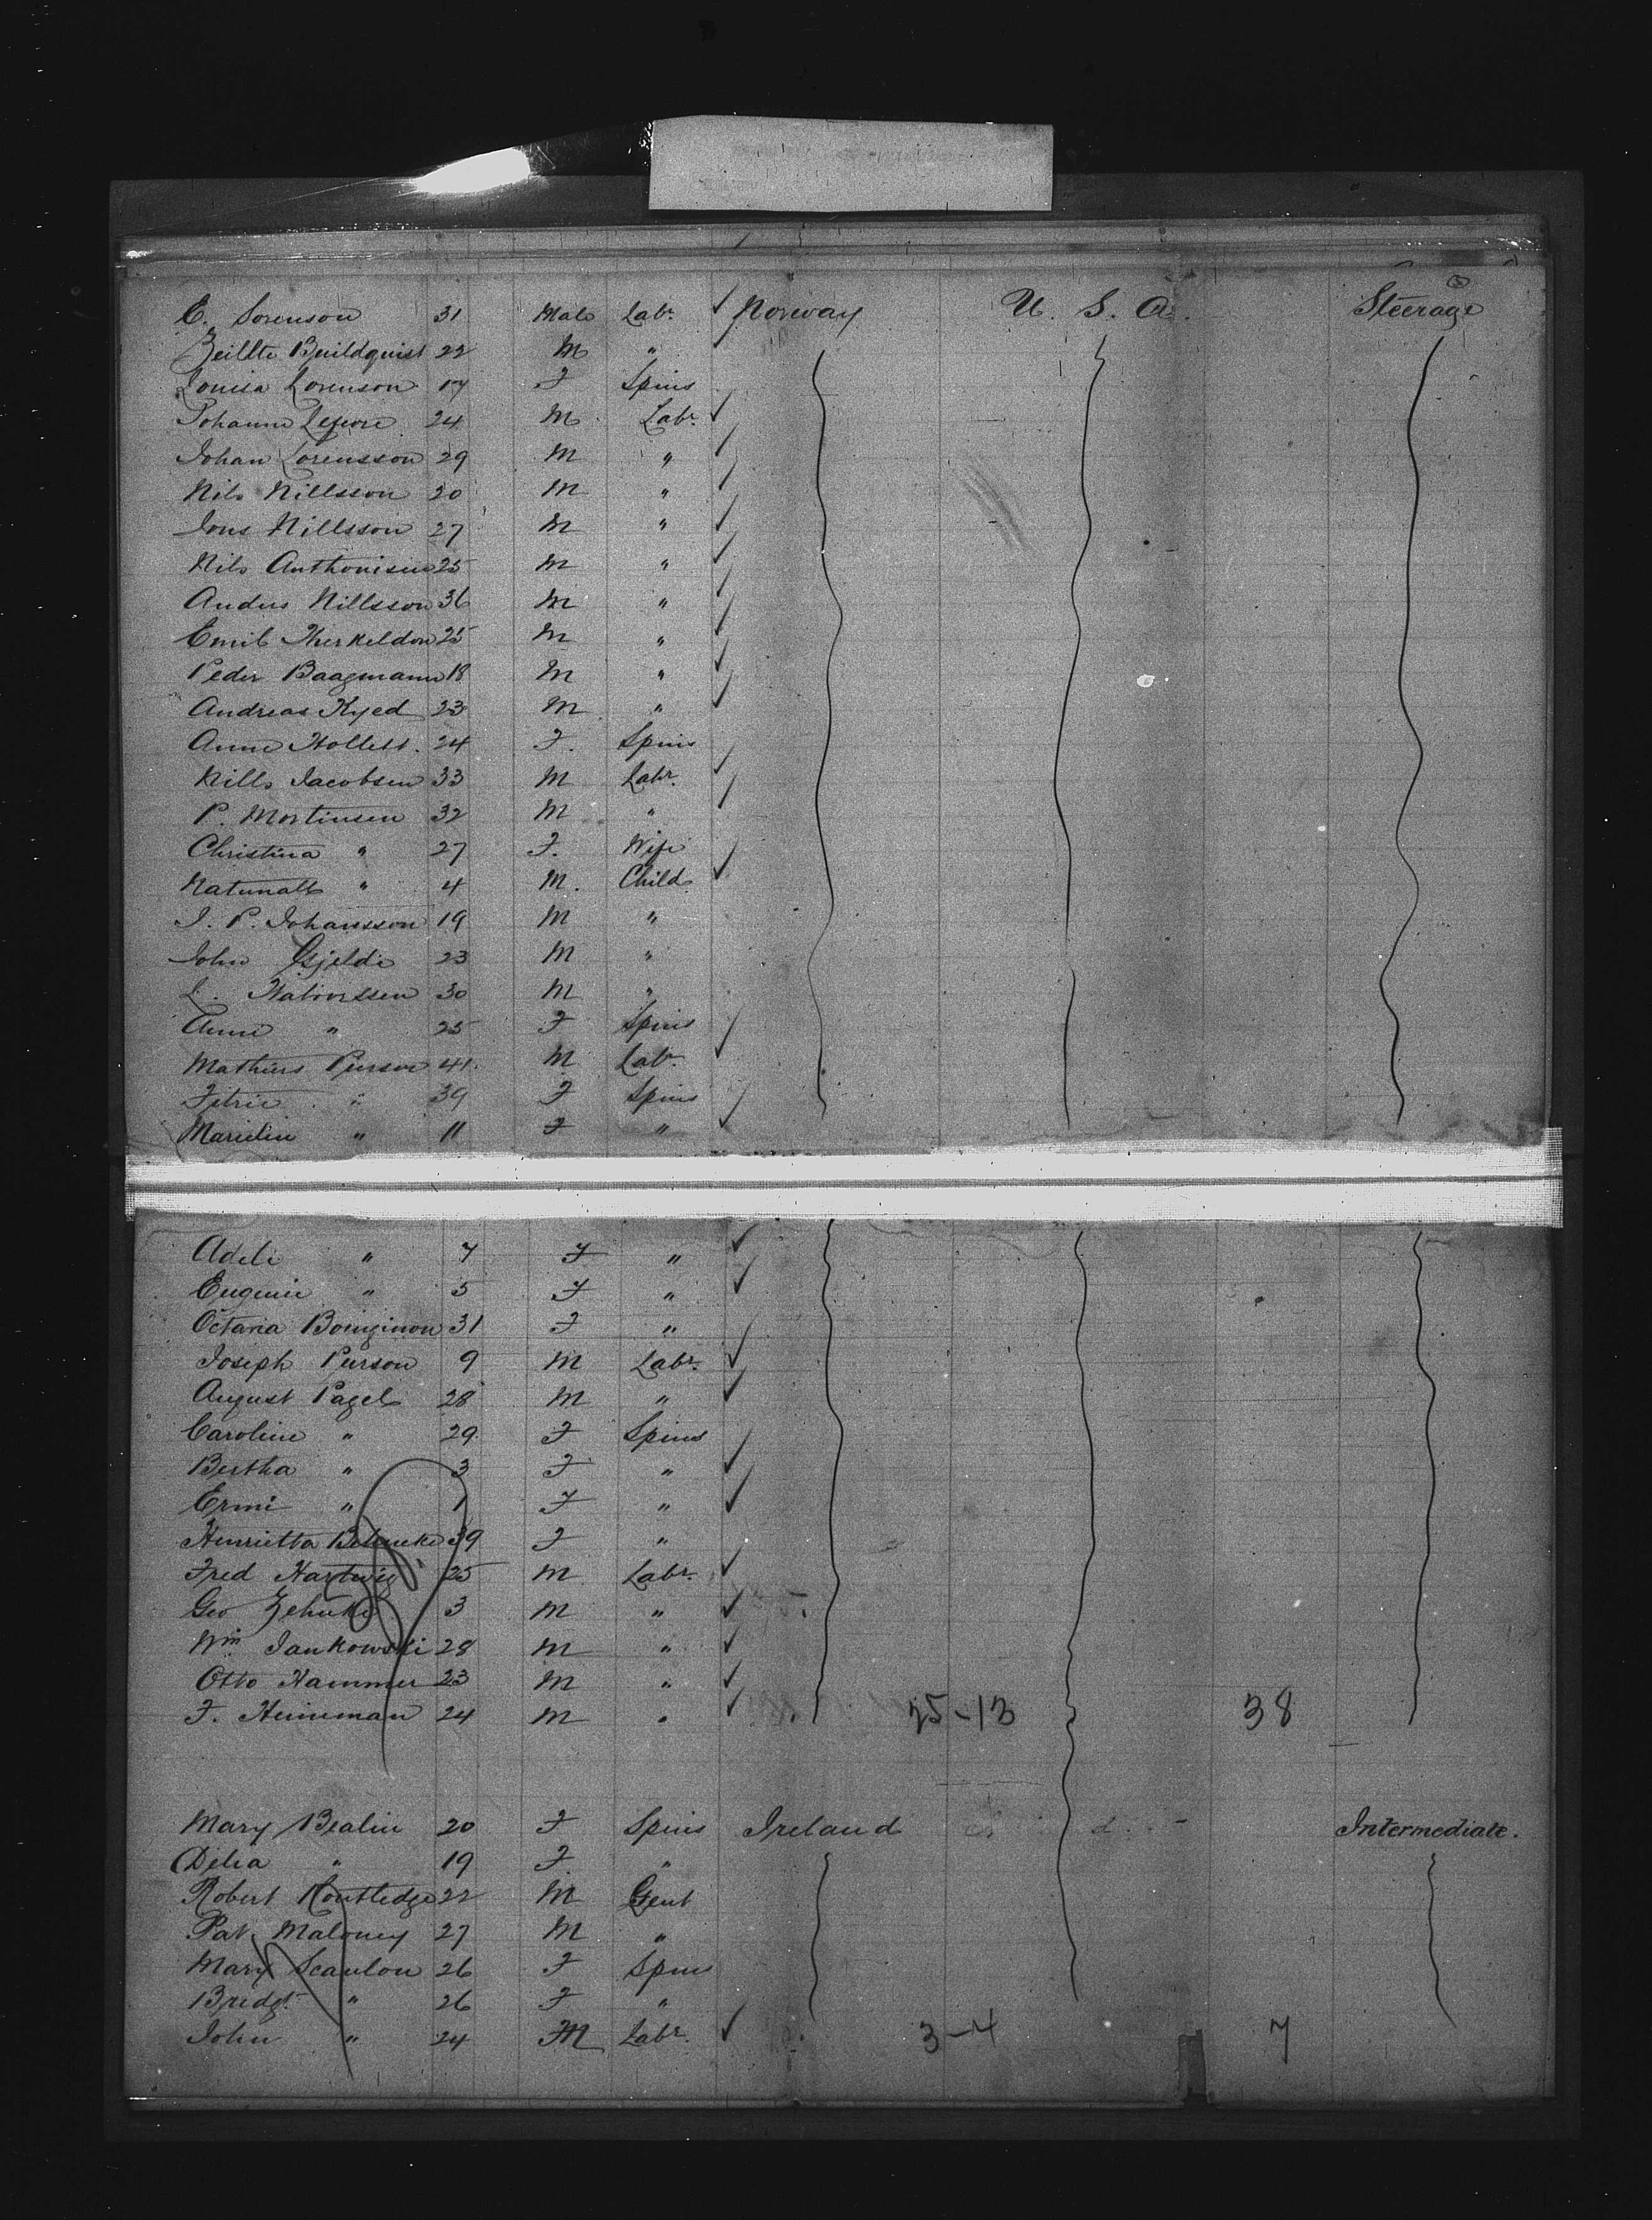 E. Sorenson 31 Male Labr. ✓ Norway U. S. A. Steerage
Zeillte Buildquist 22 M "
Louisa Lorenson 17 F Spins
Johanne 24 M Labr. ✓
Johan Lorensson 29 M " ✓
Nils Nillsson 20 M " ✓
Jons Nillsson 27 M " ✓
Nils Anthonisen 25 M " ✓
Anders Nillsson 36 M " ✓
Emil Therkeldon 25 M " ✓
Peder Baagmann 18 M " ✓
Andreas Kyed 23 M " ✓
Anne Hollett. 24 F. Spins
Nills Jacobsen 33 M Labr. ✓
P. Mortinsen 32 M " ✓
Christina " 27 F. Wife
" 4 M. Child ✓
J. P. Johansson 19 M "
John Gjelde 23 M "
L. Halvorssen 30 M "
Anne " 25 F Spins
Mathius Pierson 41. M Labr ✓
" 39 F Spins
" 11 F " ✓
Adele " 7 F " ✓
Eugenie " 5 F " ✓
Octavia 31 F "
Joseph Pierson 9 M Labr. ✓
August Pagel 28 M " ✓
Caroline " 29. F Spins
Bertha " 3 F " ✓
Ermi " 1 F " ✓
Henrietta 39 F "
Fred Hartwig 25 M Labr. ✓
Geo 3 M " ✓
Wm Jankowski 28 M " ✓
Otto Hammer 23 M " ✓
F. Heineman 24 M " ✓ 25-13 38
Mary Bealin 20 F Spins Ireland Intermediate.
Delia " 19 F. "
Robert Routledge 22 M Gent
Pat Maloney 27 M "
Mary Scanlon 26 F Spins
Bridgt " 26 F "
John " 24 M Labr. ✓ 3-4 7